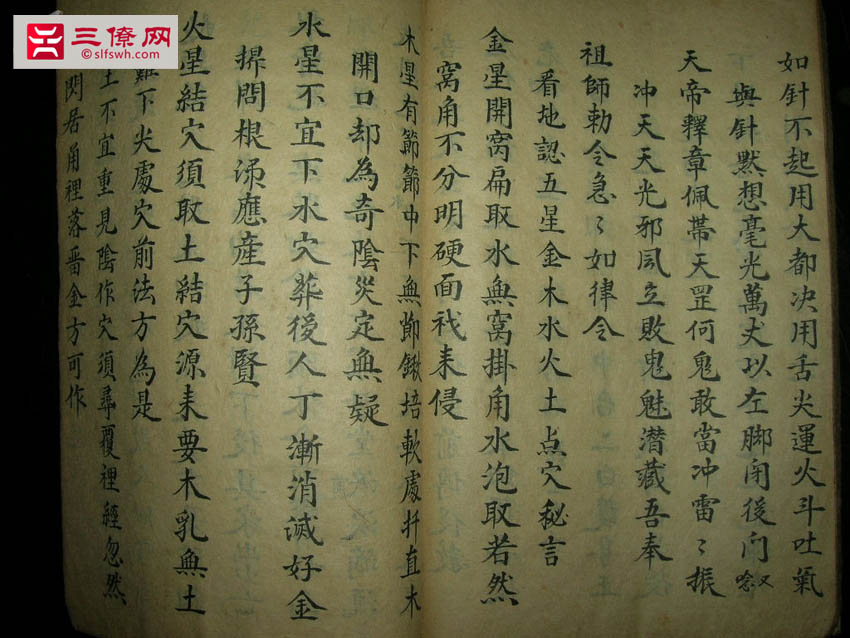 三僚网
slfswh.com
如針不起用大都决用舌尖運火斗吐氣
與針黙想毫光萬丈以左脚閉後门唸又
天帝釋章佩帶天罡何鬼敢當冲雷〻振
冲天天光邪風立敗鬼魅潜藏吾奉
祖師勅令急〻如律令
看地認五星金木水火土点穴秘言
金星開窝扁取水無窝掛角水泡取若然
窝角不分明硬面戕来侵
木星有節節中下無節鍬培軟處扦直木
開口却為奇陰災定無疑
水星不宜下水穴葬後人丁漸消滅好金
問根應産子孫賢
火星結穴須取土結穴源来要木乳無土
難下尖處穴前法方為是
土不宜重見陰作穴須尋覆裡經忽然
閃居角裡落番金方可作